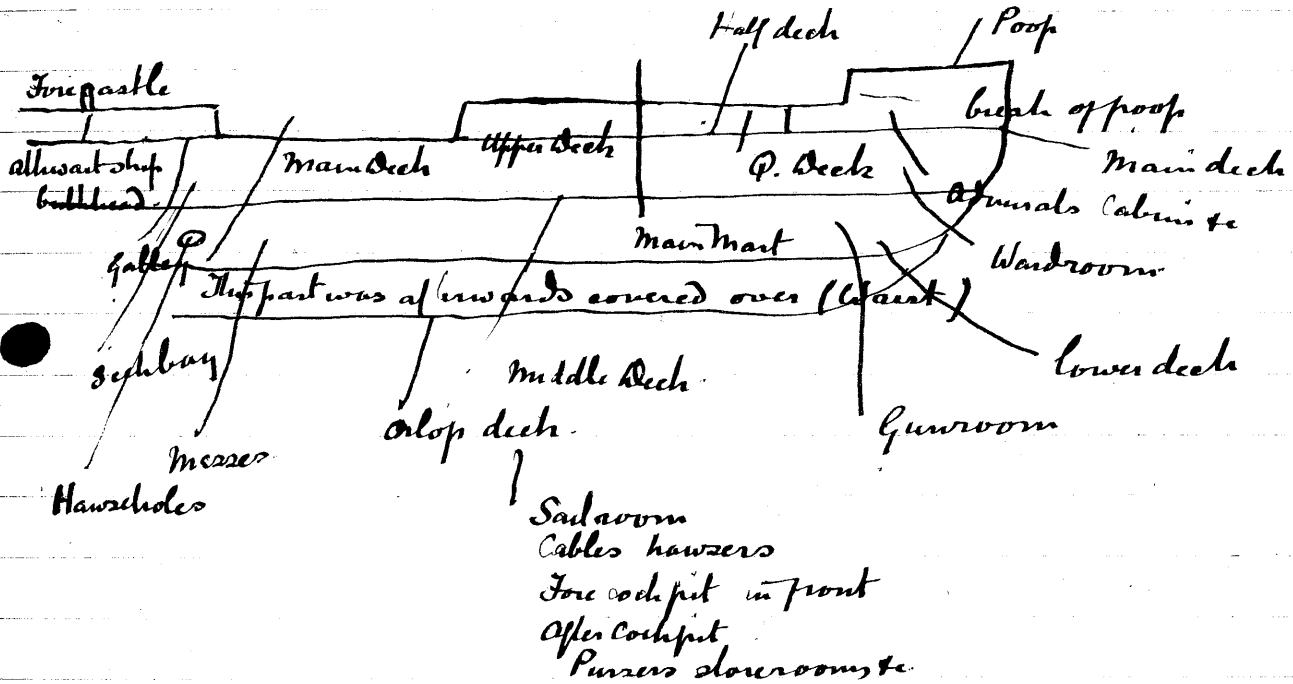 Half deck
Poop
Forecastle
break of poop
Upper Deck
athwart ship
bulkhead
Main Deck
Q. Deck
Main deck
Admirals Cabin &c
Main Mast
Galley
Wardroom
This part was afterwards covered over (Waist)
Sickbay
Middle Deck
lower deck
Orlop deck
Gunroom
Messes
Hawseholes
Sailroom
Cables hawsers
Fore cockpit in front
After Cockpit
Pursers storerooms &c